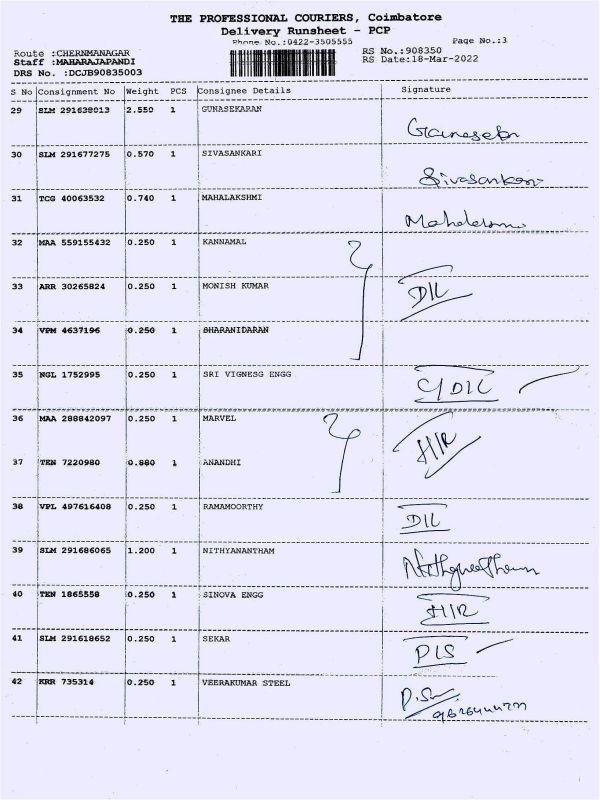 THE PROFESSIONAL COURIERS, Coimbatore
Delivery Runsheet - PCP
Phone No.:0422-3505555 Page No.:3
Route :CHERNMANAGAR RS No.:908350
Staff :MAHARAJAPANDI RS Date:18-Mar-2022
DRS No. :DCJB90835003
S No Consignment No Weight PCS Consignee Details Signature
29 SLM 291638013 2.550 1 GUNASEKARAN
30 SLM 291677275 0.570 1 SIVASANKARI Sivasankari
31 TCG 40063532 0.740 1 MAHALAKSHMI
32 MAA 559155432 0.250 1 KANNAMAL
33 ARR 30265824 0.250 1 MONISH KUMAR D/L
34 VPM 4637196 0.250 1 BHARANIDARAN
35 NGL 1752995 0.250 1 SRI VIGNESG ENGG C/D/L
36 MAA 288842097 0.250 1 MARVEL H/R
37 TEN 7220980 0.880 1 ANANDHI
38 VPL 497616408 0.250 1 RAMAMOORTHY D/L
39 SLM 291686065 1.200 1 NITHYANANTHAM
40 TEN 1865558 0.250 1 SINOVA ENGG H/R
41 SLM 291618652 0.250 1 SEKAR D/S
42 KRR 735314 0.250 1 VEERAKUMAR STEEL